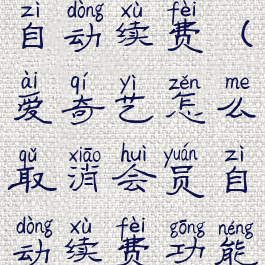 zì dòng xù fèi
自动续费（
ài qí yì zěn me
爱奇艺怎么
qǔ xiāo huì yuán zì
取消会员自
dòng xù fèi gōng néng
动续费功能